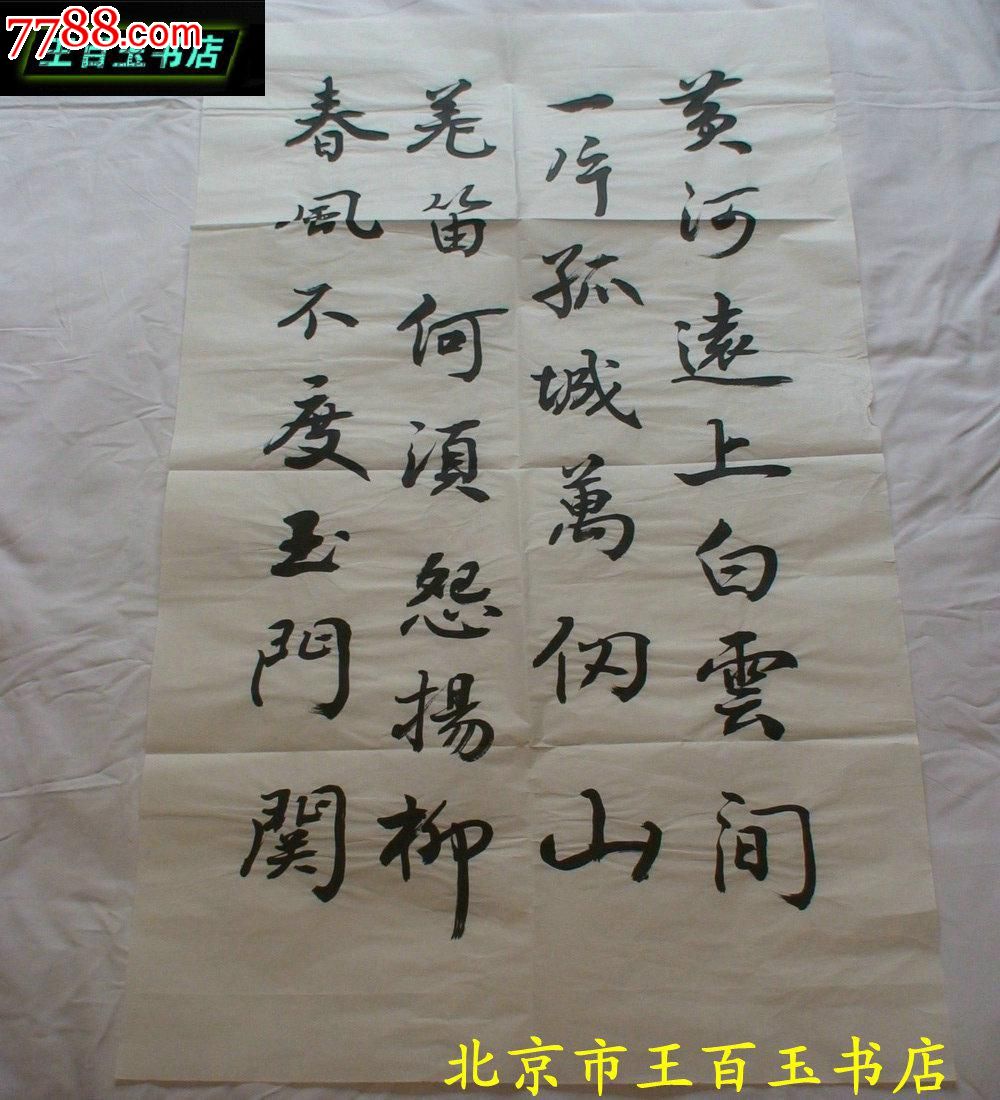 7788.com
王百玉书店
黃河遠上白雲間
一片孤城萬仞山
羌笛何須怨揚柳
春風不度玉門関
北京市王百玉书店